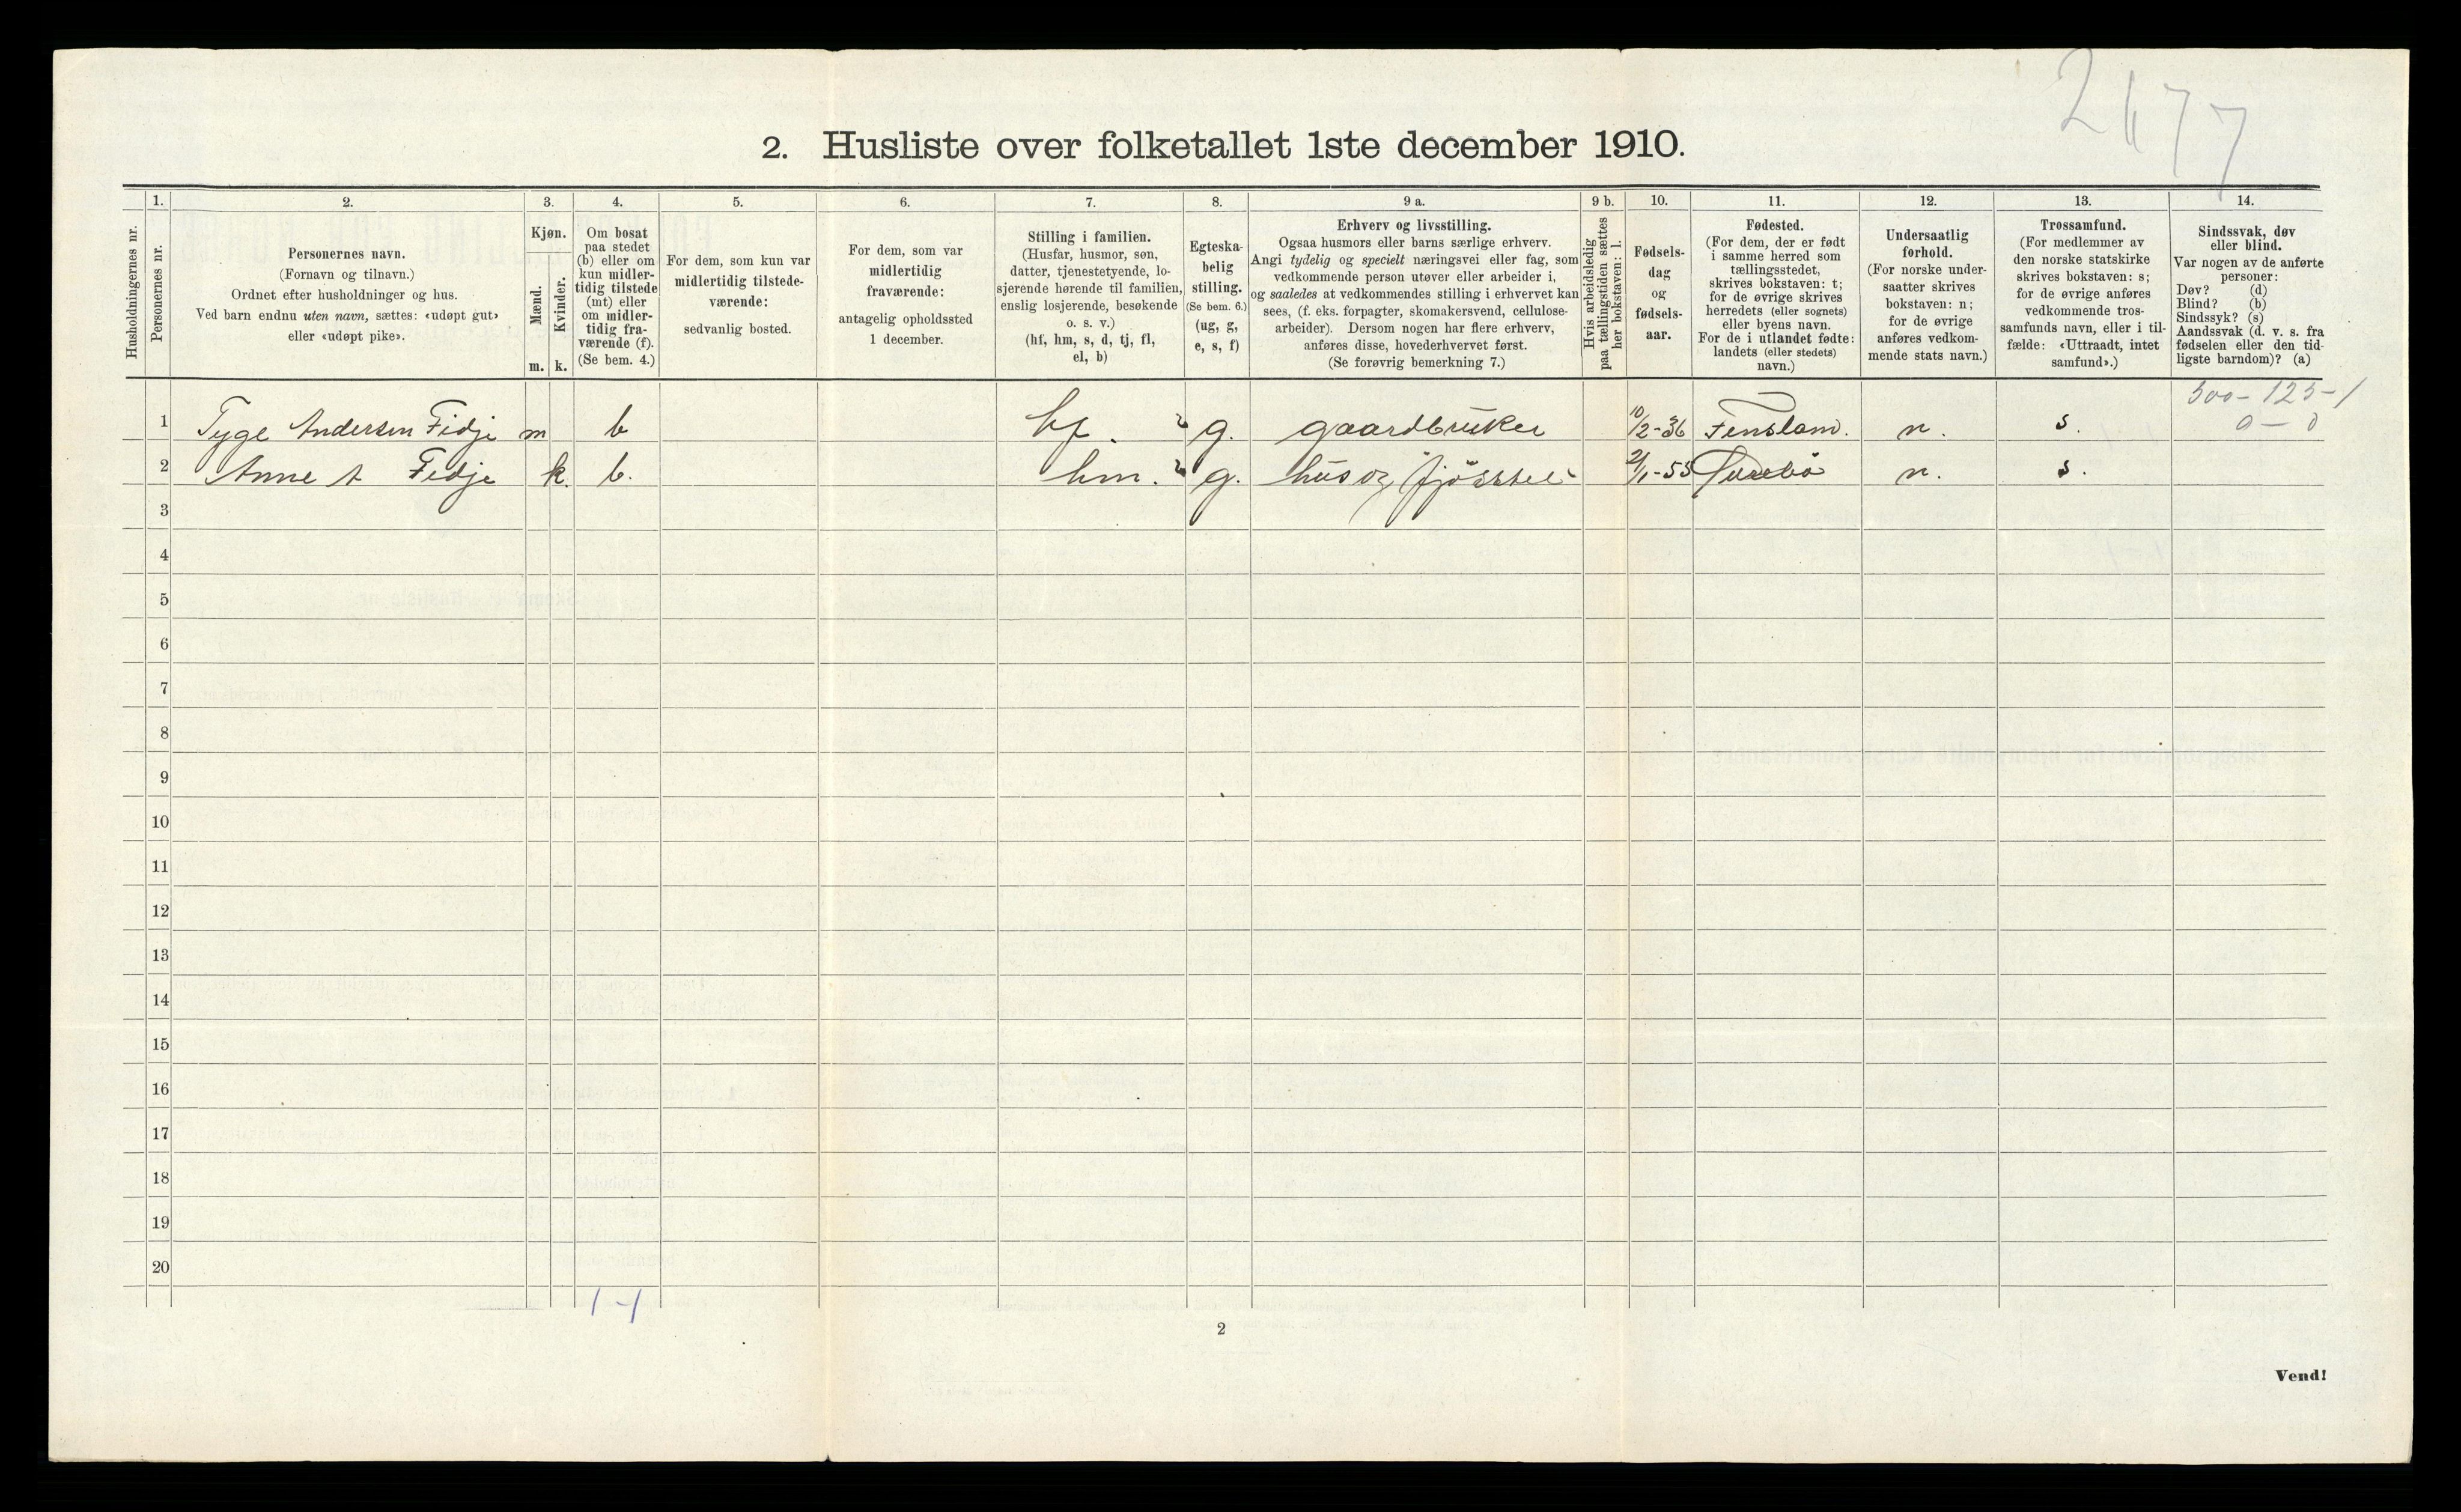 2477
2. Husliste over folketallet 1ste december 1910.
Husholdningernes nr.
1.
Personernes nr.
2.
Personernes navn.
(Fornavn og tilnavn.)
Ordnet efter husholdninger og hus.
Ved barn endnu uten navn, sættes: «udøpt gut»
eller «udøpt pike».
3.
Kjøn.
Mænd.
Kvinder.
m. k.
4.
Om bosat
paa stedet
(b) eller om
kun midler-
tidig tilstede
(mt) eller
om midler-
tidig fra-
værende (f).
(Se bem. 4.)
5.
For dem, som kun var
midlertidig tilstede-
værende:
sedvanlig bosted.
6.
For dem, som var
midlertidig
fraværende:
antagelig opholdssted
1 december.
7.
Stilling i familien.
(Husfar, husmor, søn,
datter, tjenestetyende, lo-
sjerende hørende til familien,
enslig losjerende, besøkende
o. s. v.)
(hf, hm, s, d, tj, fl,
el, b)
8.
Egteska-
belig
stilling.
(Se bem. 6.)
(ug, g,
e, s, f)
9 a.
Erhverv og livsstilling.
Ogsaa husmors eller barns særlige erhverv.
Angi tydelig og specielt næringsvei eller fag, som
vedkommende person utøver eller arbeider i,
og saaledes at vedkommendes stilling i erhvervet kan
sees, (f. eks. forpagter, skomakersvend, cellulose-
arbeider). Dersom nogen har flere erhverv,
anføres disse, hovederhvervet først.
(Se forøvrig bemerkning 7.)
9 b.
Hvis arbeidsledig
paa tællingstiden sættes
her bokstaven: l.
10.
Fødsels-
dag
og
fødsels-
aar.
11.
Fødested.
(For dem, der er født
i samme herred som
tællingsstedet,
skrives bokstaven: t;
for de øvrige skrives
herredets (eller sognets)
eller byens navn.
For de i utlandet fødte:
landets (eller stedets)
navn.)
12.
Undersaatlig
forhold.
(For norske under-
saatter skrives
bokstaven: n;
for de øvrige
anføres vedkom-
mende stats navn.)
13.
Trossamfund.
(For medlemmer av
den norske statskirke
skrives bokstaven: s;
for de øvrige anføres
vedkommende tros-
samfunds navn, eller i til-
fælde: «Uttraadt, intet
samfund».)
14.
Sindssvak, døv
eller blind.
Var nogen av de anførte
personer:
Døv? (d)
Blind? (b)
Sindssyk? (s)
Aandssvak (d. v. s. fra
fødselen eller den tid-
ligste barndom)? (a)
500-125-1
0-0
1 Tyge Andersen Fidje m b hf. g. gaardbruker 10/2-36 n. s.
2 Anne A Fidje k. b. hm. g. hus og fjösstel 2/1-55 n. s.
3
4
5
6
7
8
9
10
11
12
13
14
15
16
17
18
19
20
1-1
2
Vend!